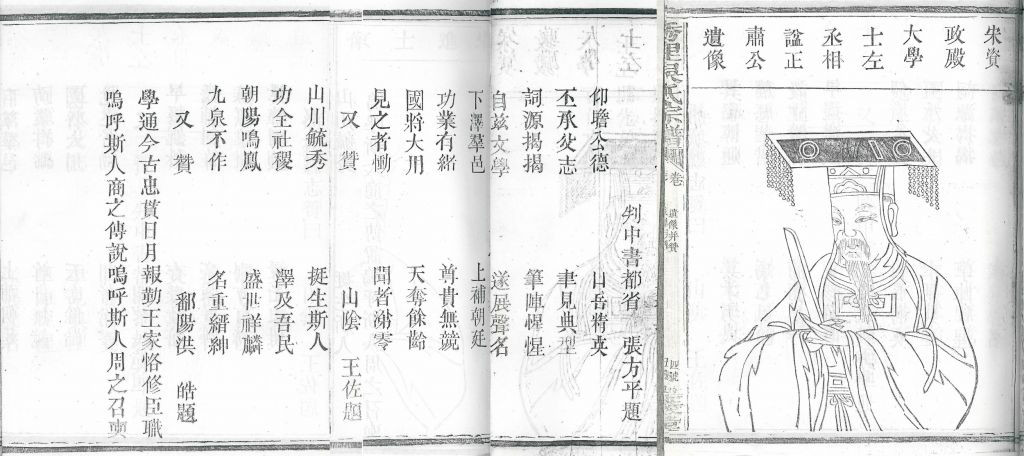 宋資
政殿
大學
士左
丞相
諡正
肅公
遺像
氏宗譜
卷
遺像并贊
判中書都省 張方平題
仰瞻公德 山岳精英
丕承父志 聿見典型
詞源揭揭 筆陣惺惺
自茲文學 遂展聲名
下澤羣邑 上補朝廷
功業有緒 尊貴無競
國將大用 天奪餘齡
見之者慟 聞者涕零
又贊 山陰 王佐題
山川毓秀 挺生斯人
功全社稷 澤及吾民
朝陽鳴鳳 盛世祥麟
九泉不作 名重縉紳
又贊 鄱陽洪 皓題
學通今古忠貫日月報勤王家恪修臣職
嗚呼斯人商之傅說嗚呼斯人周之召奭